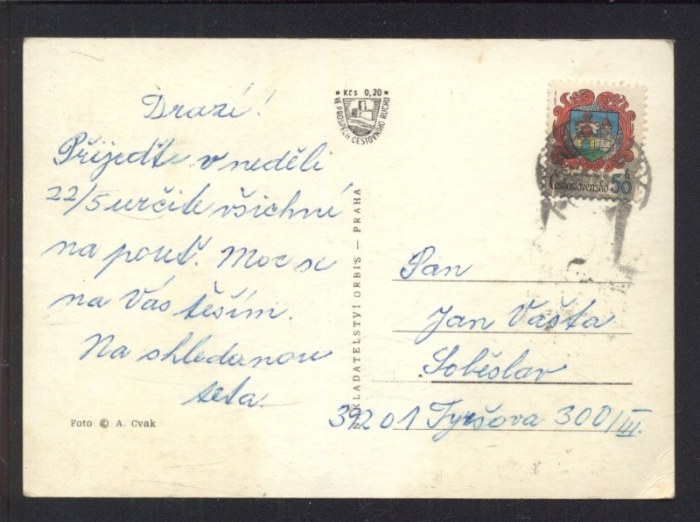 Drazí!
Přijeďte v neděli
22/5 určitě všichni
na pouť. Moc se
na Vás těším.
Na shledanou
teta
Foto © A. Cvak
Kčs 0,20
VE PROSPĚCH CESTOVNÍHO RUCHU
NAKLADATELSTVÍ ORBIS — PRAHA
Československo 50
Pan
Jan Vašta
Soběslav
392 01 Tyršova 300/III.